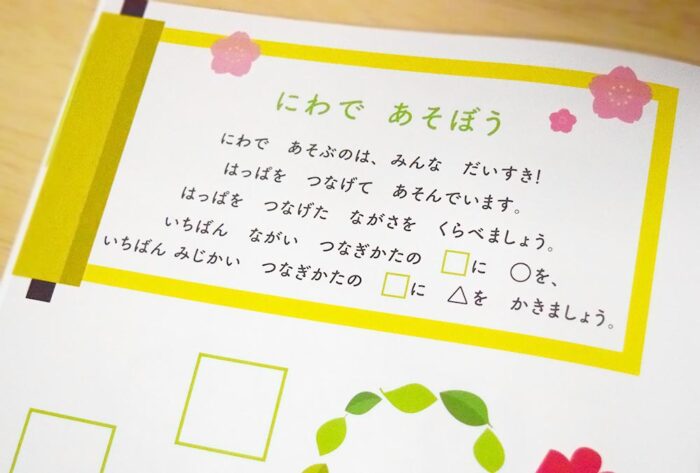 にわで　あそぼう
にわで　あそぶのは、みんな　だいすき!
はっぱを　つなげて　あそんでいます。
はっぱを　つなげた　ながさを　くらべましょう。
いちばん　ながい　つなぎかたの　□に　○を、
いちばん みじかい　つなぎかたの　□に　△を　かきましょう。